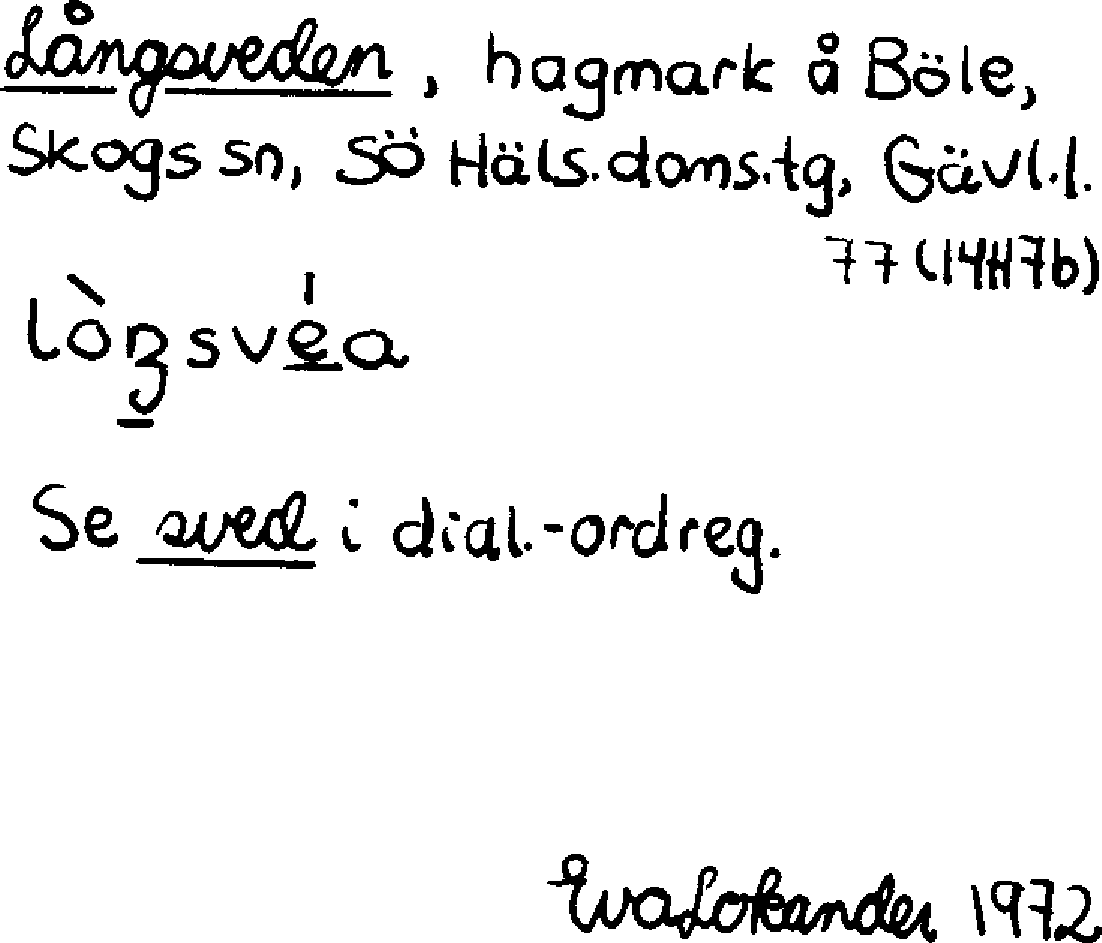 Långsveden, hagmark å Böle,
Skogs sn, SÖ Häls. doms.tg, Gävl.l.
77 (14H7b)
lòŋsvéa
Se sved i dial.-ordreg.
Eva Lokander 1972